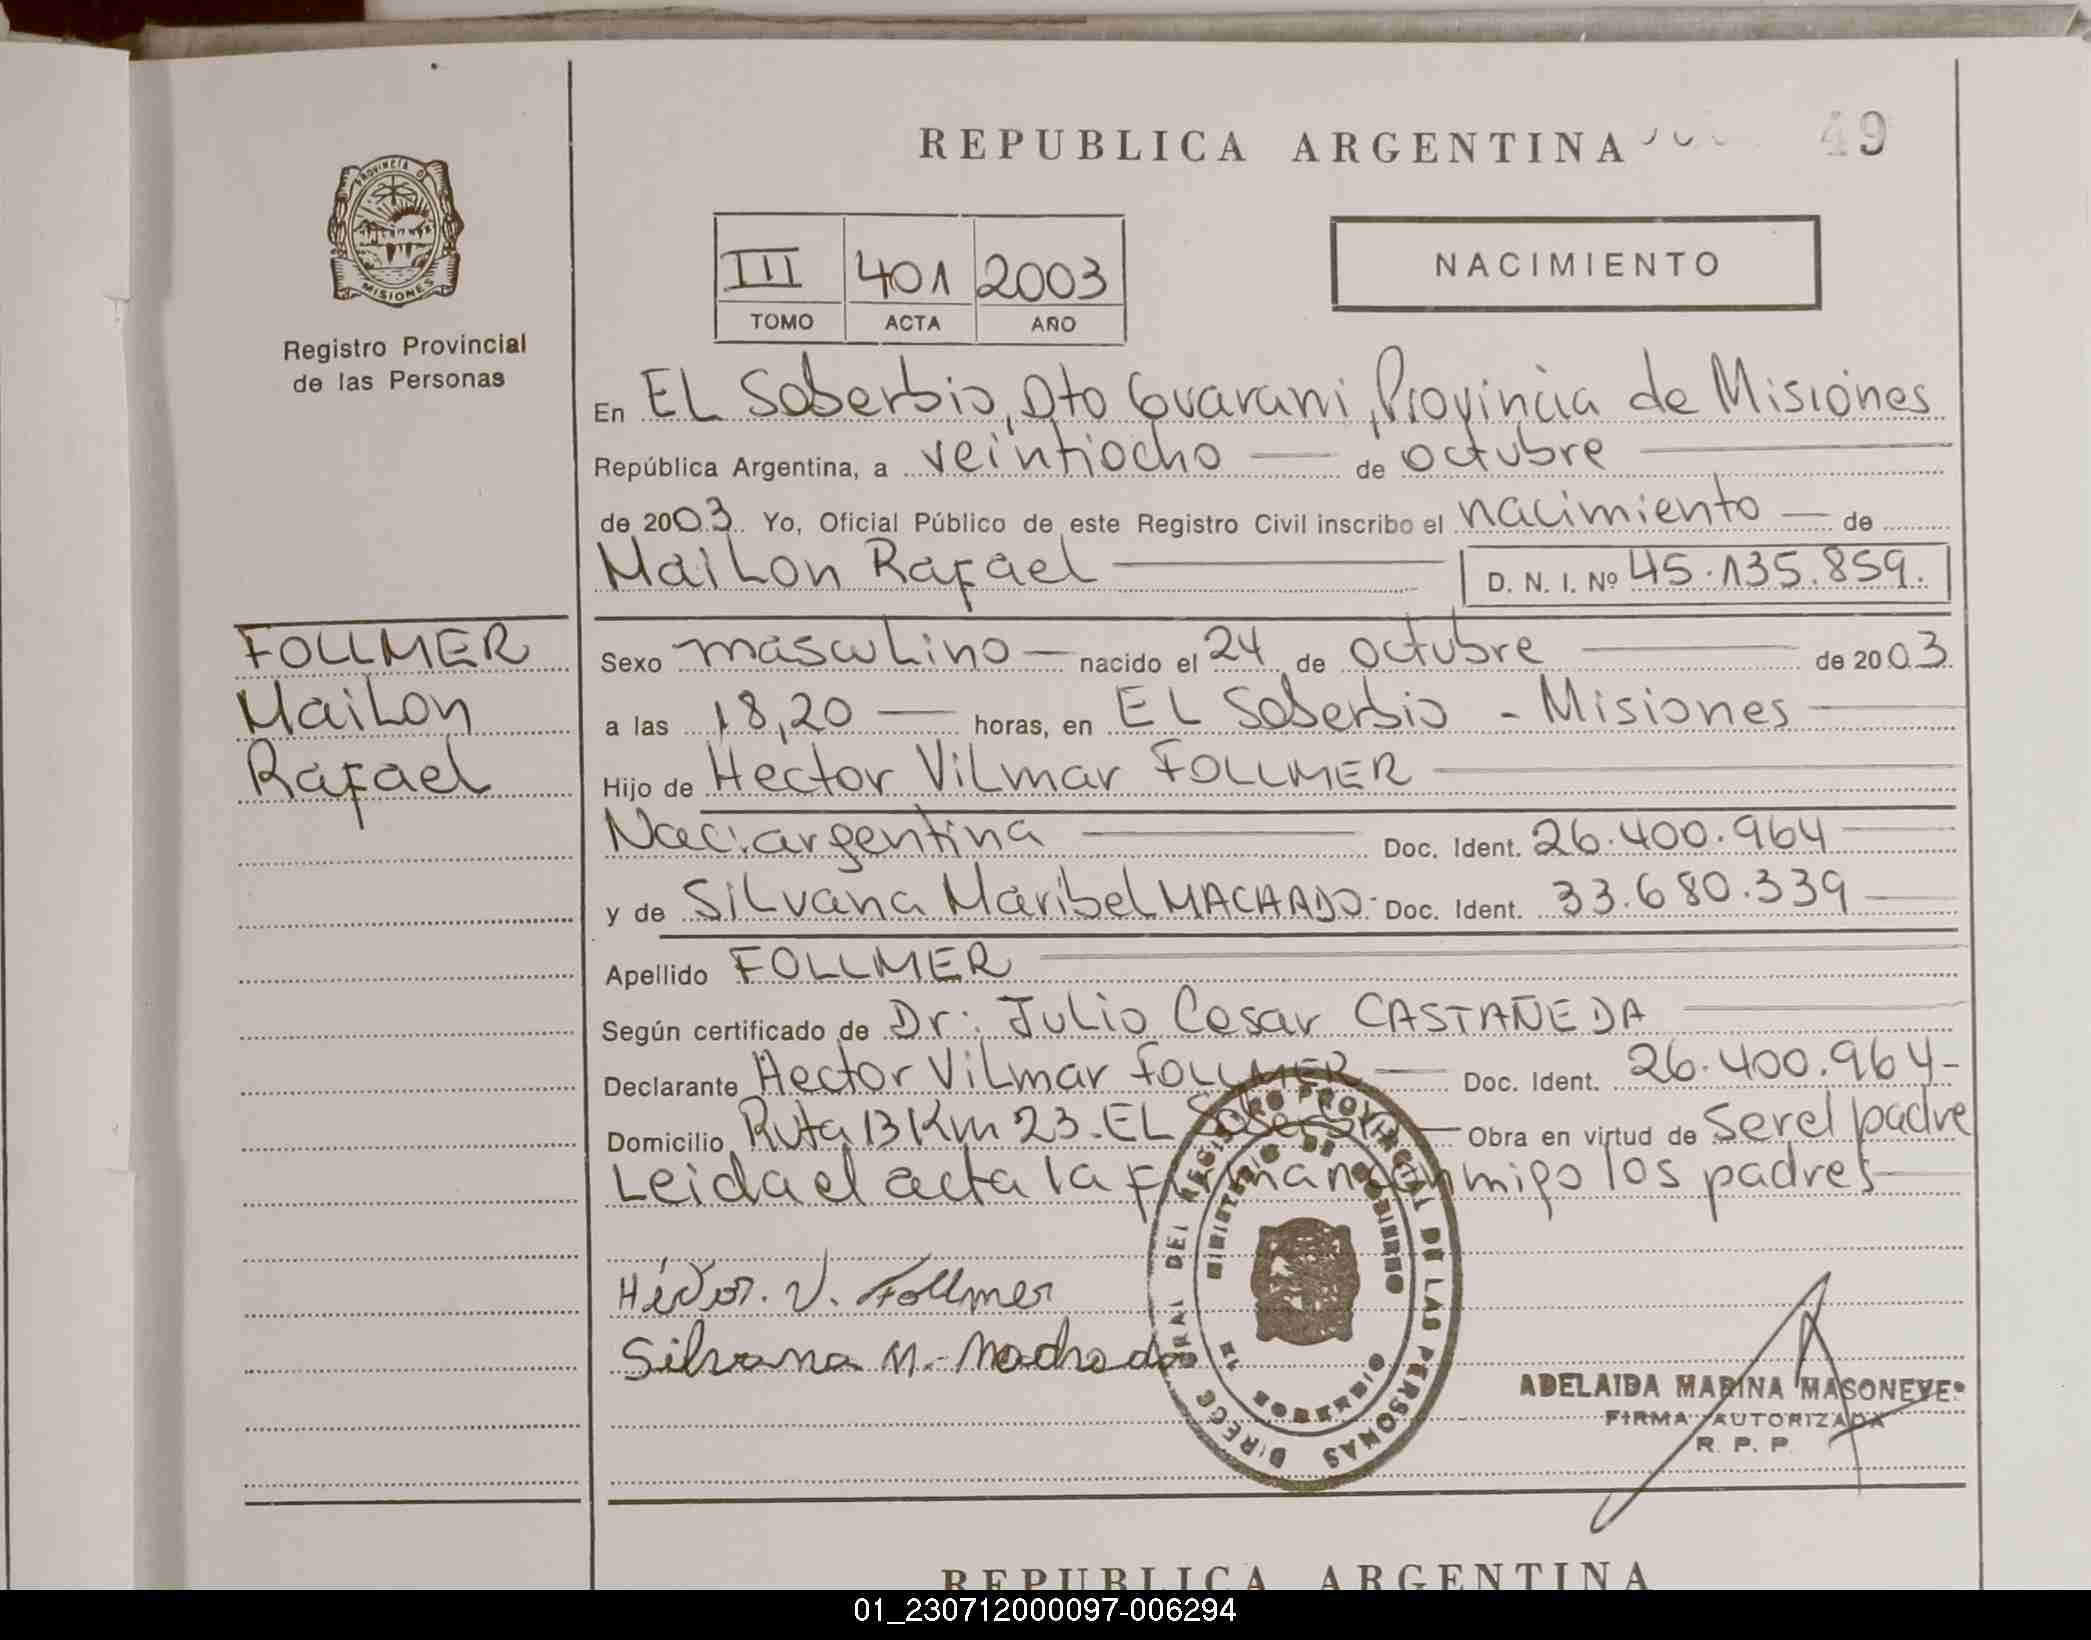 REPUBLICA ARGENTINA
49
PROVINCIA D
MISIONES
Registro Provincial
de las Personas
III 401 2003
TOMO ACTA AÑO
NACIMIENTO
En EL Soberbio, Dto Guarani, Provincia de Misiones
República Argentina, a veintiocho — de octubre
de 2003. Yo, Oficial Público de este Registro Civil inscribo el nacimiento — de
MaiLon Rafael
D. N. I. Nº 45.135.859.
FOLLMER
MaiLon
Rafael
Sexo mascuLino — nacido el 24 de octubre de 2003
a las 18,20 — horas, en EL Soberbio - Misiones
Hijo de Hector ViLmar FOLLMER
Nac: argentina Doc. Ident. 26.400.964
y de SiLvana MaribeL MACHADO.- Doc. Ident. 33.680.339
Apellido FOLLMER
Según certificado de Dr: JuLio Cesar CASTAÑEDA
Declarante Hector ViLmar FOLLMER — Doc. Ident. 26.400.964-
Domicilio Ruta 13 Km 23-EL Soberbio — Obra en virtud de ser el padre
Leida el acta la firman conmigo los padres
Héctor. V. Follmer
Silvana M.- Machado
DEL REGISTRO PROVINCIAL DE LAS PERSONAS
MINISTERIO DE GOBIERNO
ADELAIDA MARINA MASONEVE
FIRMA AUTORIZADA
R. P. P.
REPUBLICA ARGENTINA
01_230712000097-006294